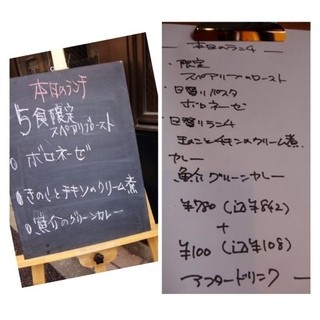 本日のランチ
5食限定
スペアリブロースト
ボロネーゼ
きのことチキンのクリーム煮
魚介のグリーンカレー
本日のランチ
限定
スペアリブのロースト
日替りパスタ
ボロネーゼ
日替りランチ
きのことチキンのクリーム煮
カレー
魚介グリーンカレー
¥780(込¥842)
+
¥100(込¥108)
アフタードリンク